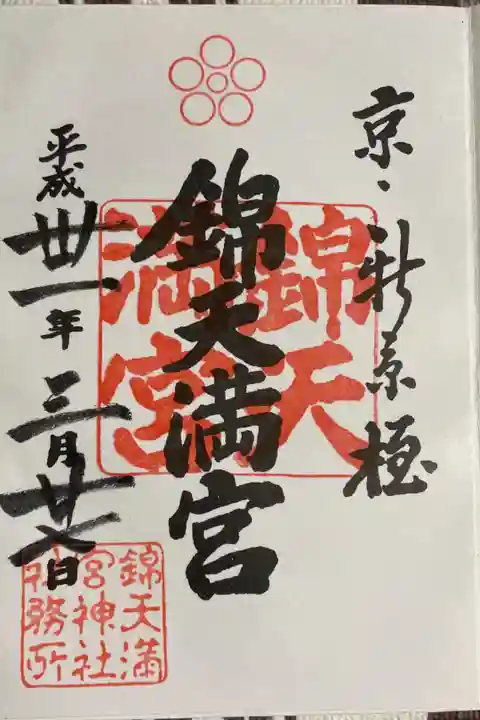 京・新京極
錦天満宮
平成卅一年三月廿日
錦天
満宮
錦天満
宮神社
社務所